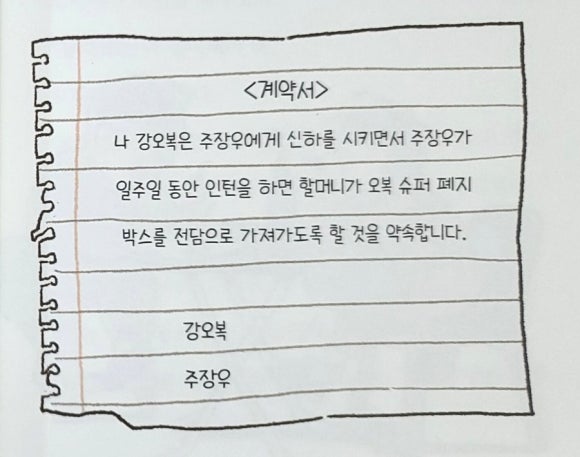 <계약서>
나 강오복은 주장우에게 신하를 시키면서 주장우가
일주일 동안 인턴을 하면 할머니가 오복 슈퍼 폐지
박스를 전담으로 가져가도록 할 것을 약속합니다.
강오복
주장우